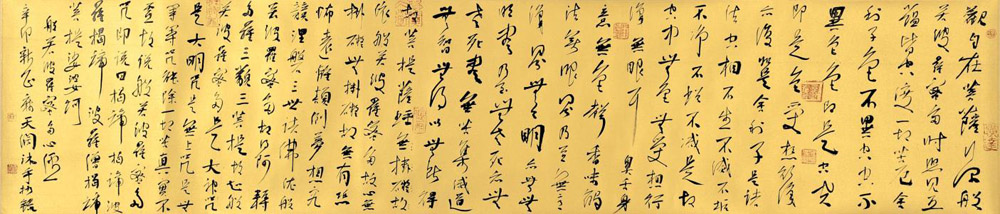 觀自在菩薩行深般
若波羅蜜多時照見五
蘊皆空度一切苦厄舍
利子色不異空空不
異色色即是空空
即是色受想行識
亦復如是舍利子是諸
法空相不生不滅不垢
不淨不增不減是故
空中無色無受想行
識無眼耳鼻舌身
意無色聲香味觸
法無眼界乃至無意
識界無無明亦無
無明盡乃至無老死亦無
老死盡無苦集滅道
無智亦無得以無所得
故菩提薩埵
依般若波羅蜜多故心無
掛礙無掛礙故無有恐
怖遠離顛倒夢想究
竟涅槃三世諸佛依般
若波羅蜜多故得阿耨
多羅三藐三菩提故知般
若波羅蜜多是大神咒
是大明咒是無上咒是無
等等咒能除一切苦真實不
虛故說般若波羅蜜多
咒即說咒曰揭諦揭諦波
羅揭諦波羅僧揭諦
菩提娑婆訶
般若波羅蜜多心經
辛卯新正天闊沐手抄